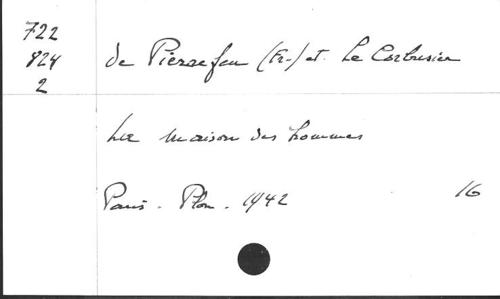 722
824
2
de Pierrefeu (Fr.-) et Le Corbusier
La maison des hommes
Paris - Plon - 1942
16